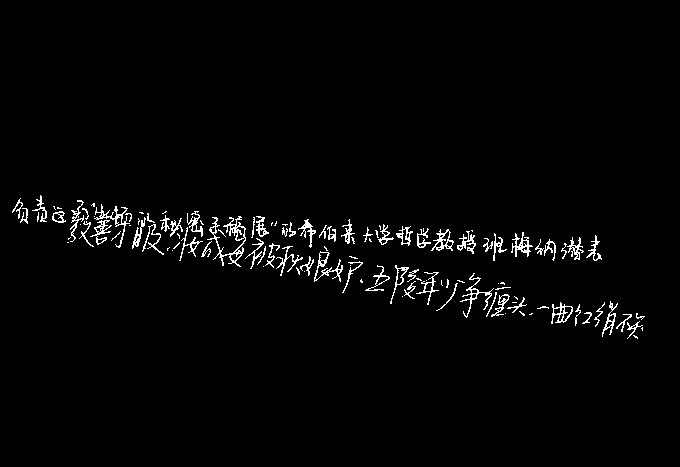 负责这次"牛顿的秘密手稿展"的希伯来大学哲学教授班梅纳潜表
教善才服,妆成每被秋娘妒,五陵年少争缠头,一曲红绡不